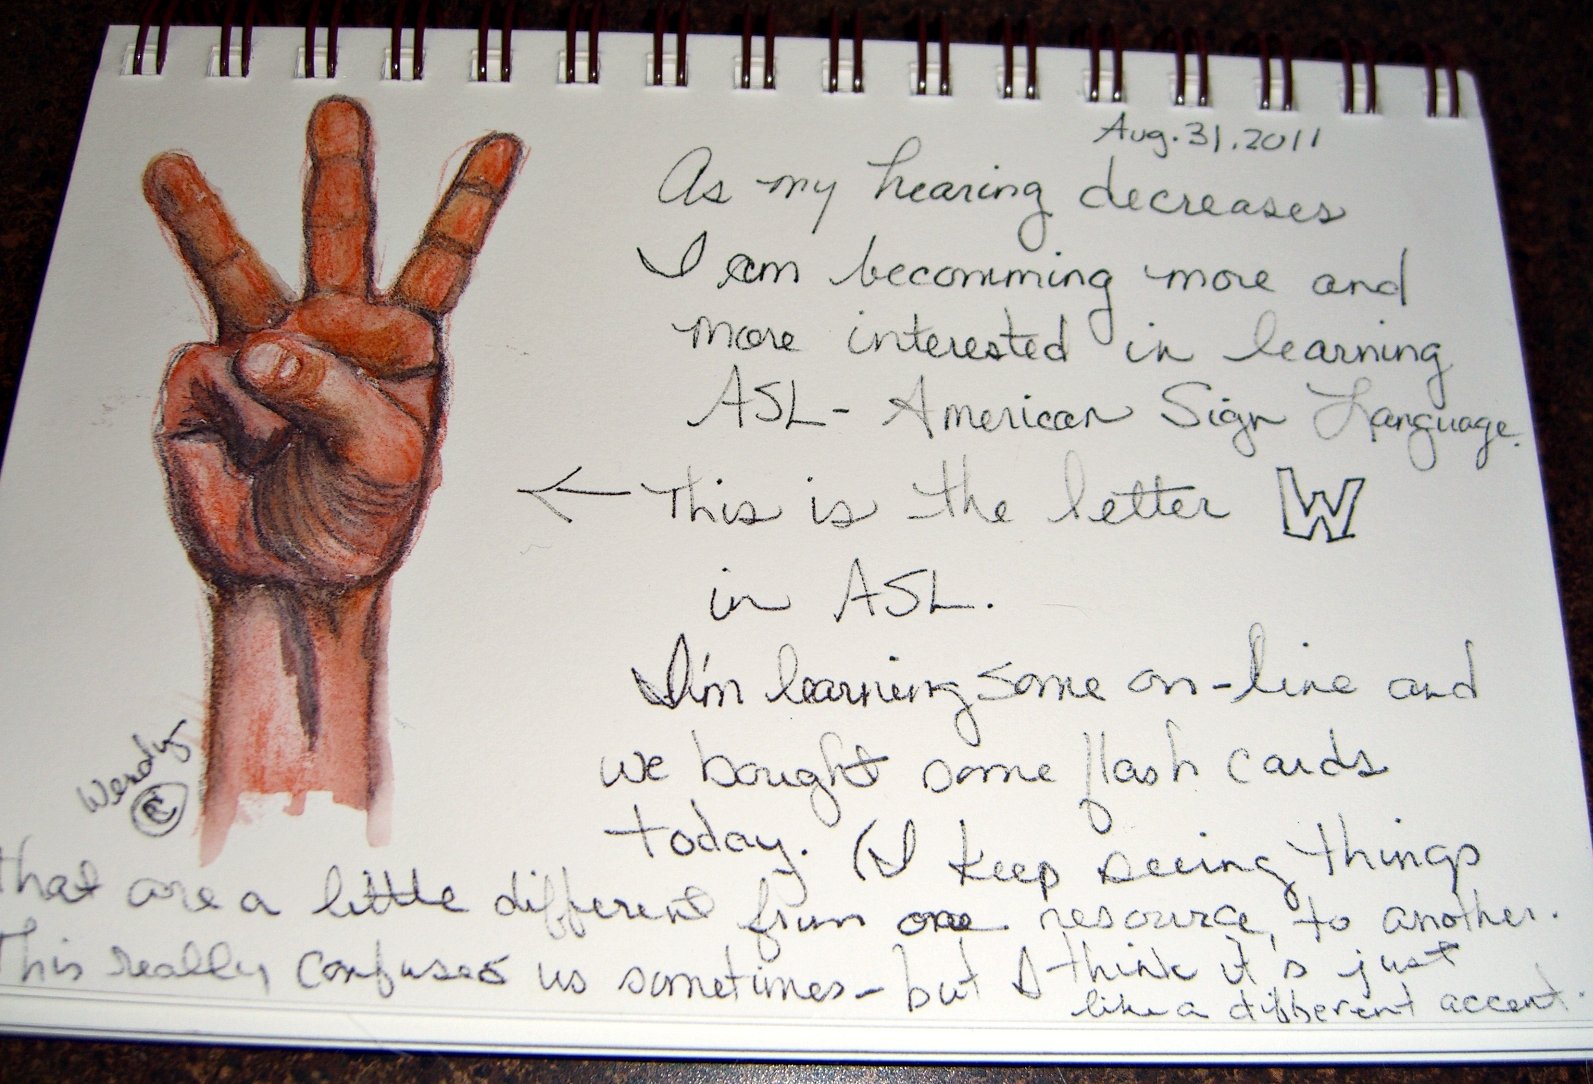 Aug. 31, 2011
As my hearing decreases
I am becomming more and
more interested in learning
ASL - American Sign Language.
← This is the letter W
in ASL.
I'm learning some on-line and
we bought some flash cards
today. (I keep seeing things
that are a little different from one resource, to another.
This really confuses us sometimes - but I think it's just
like a different accent.
Wendy